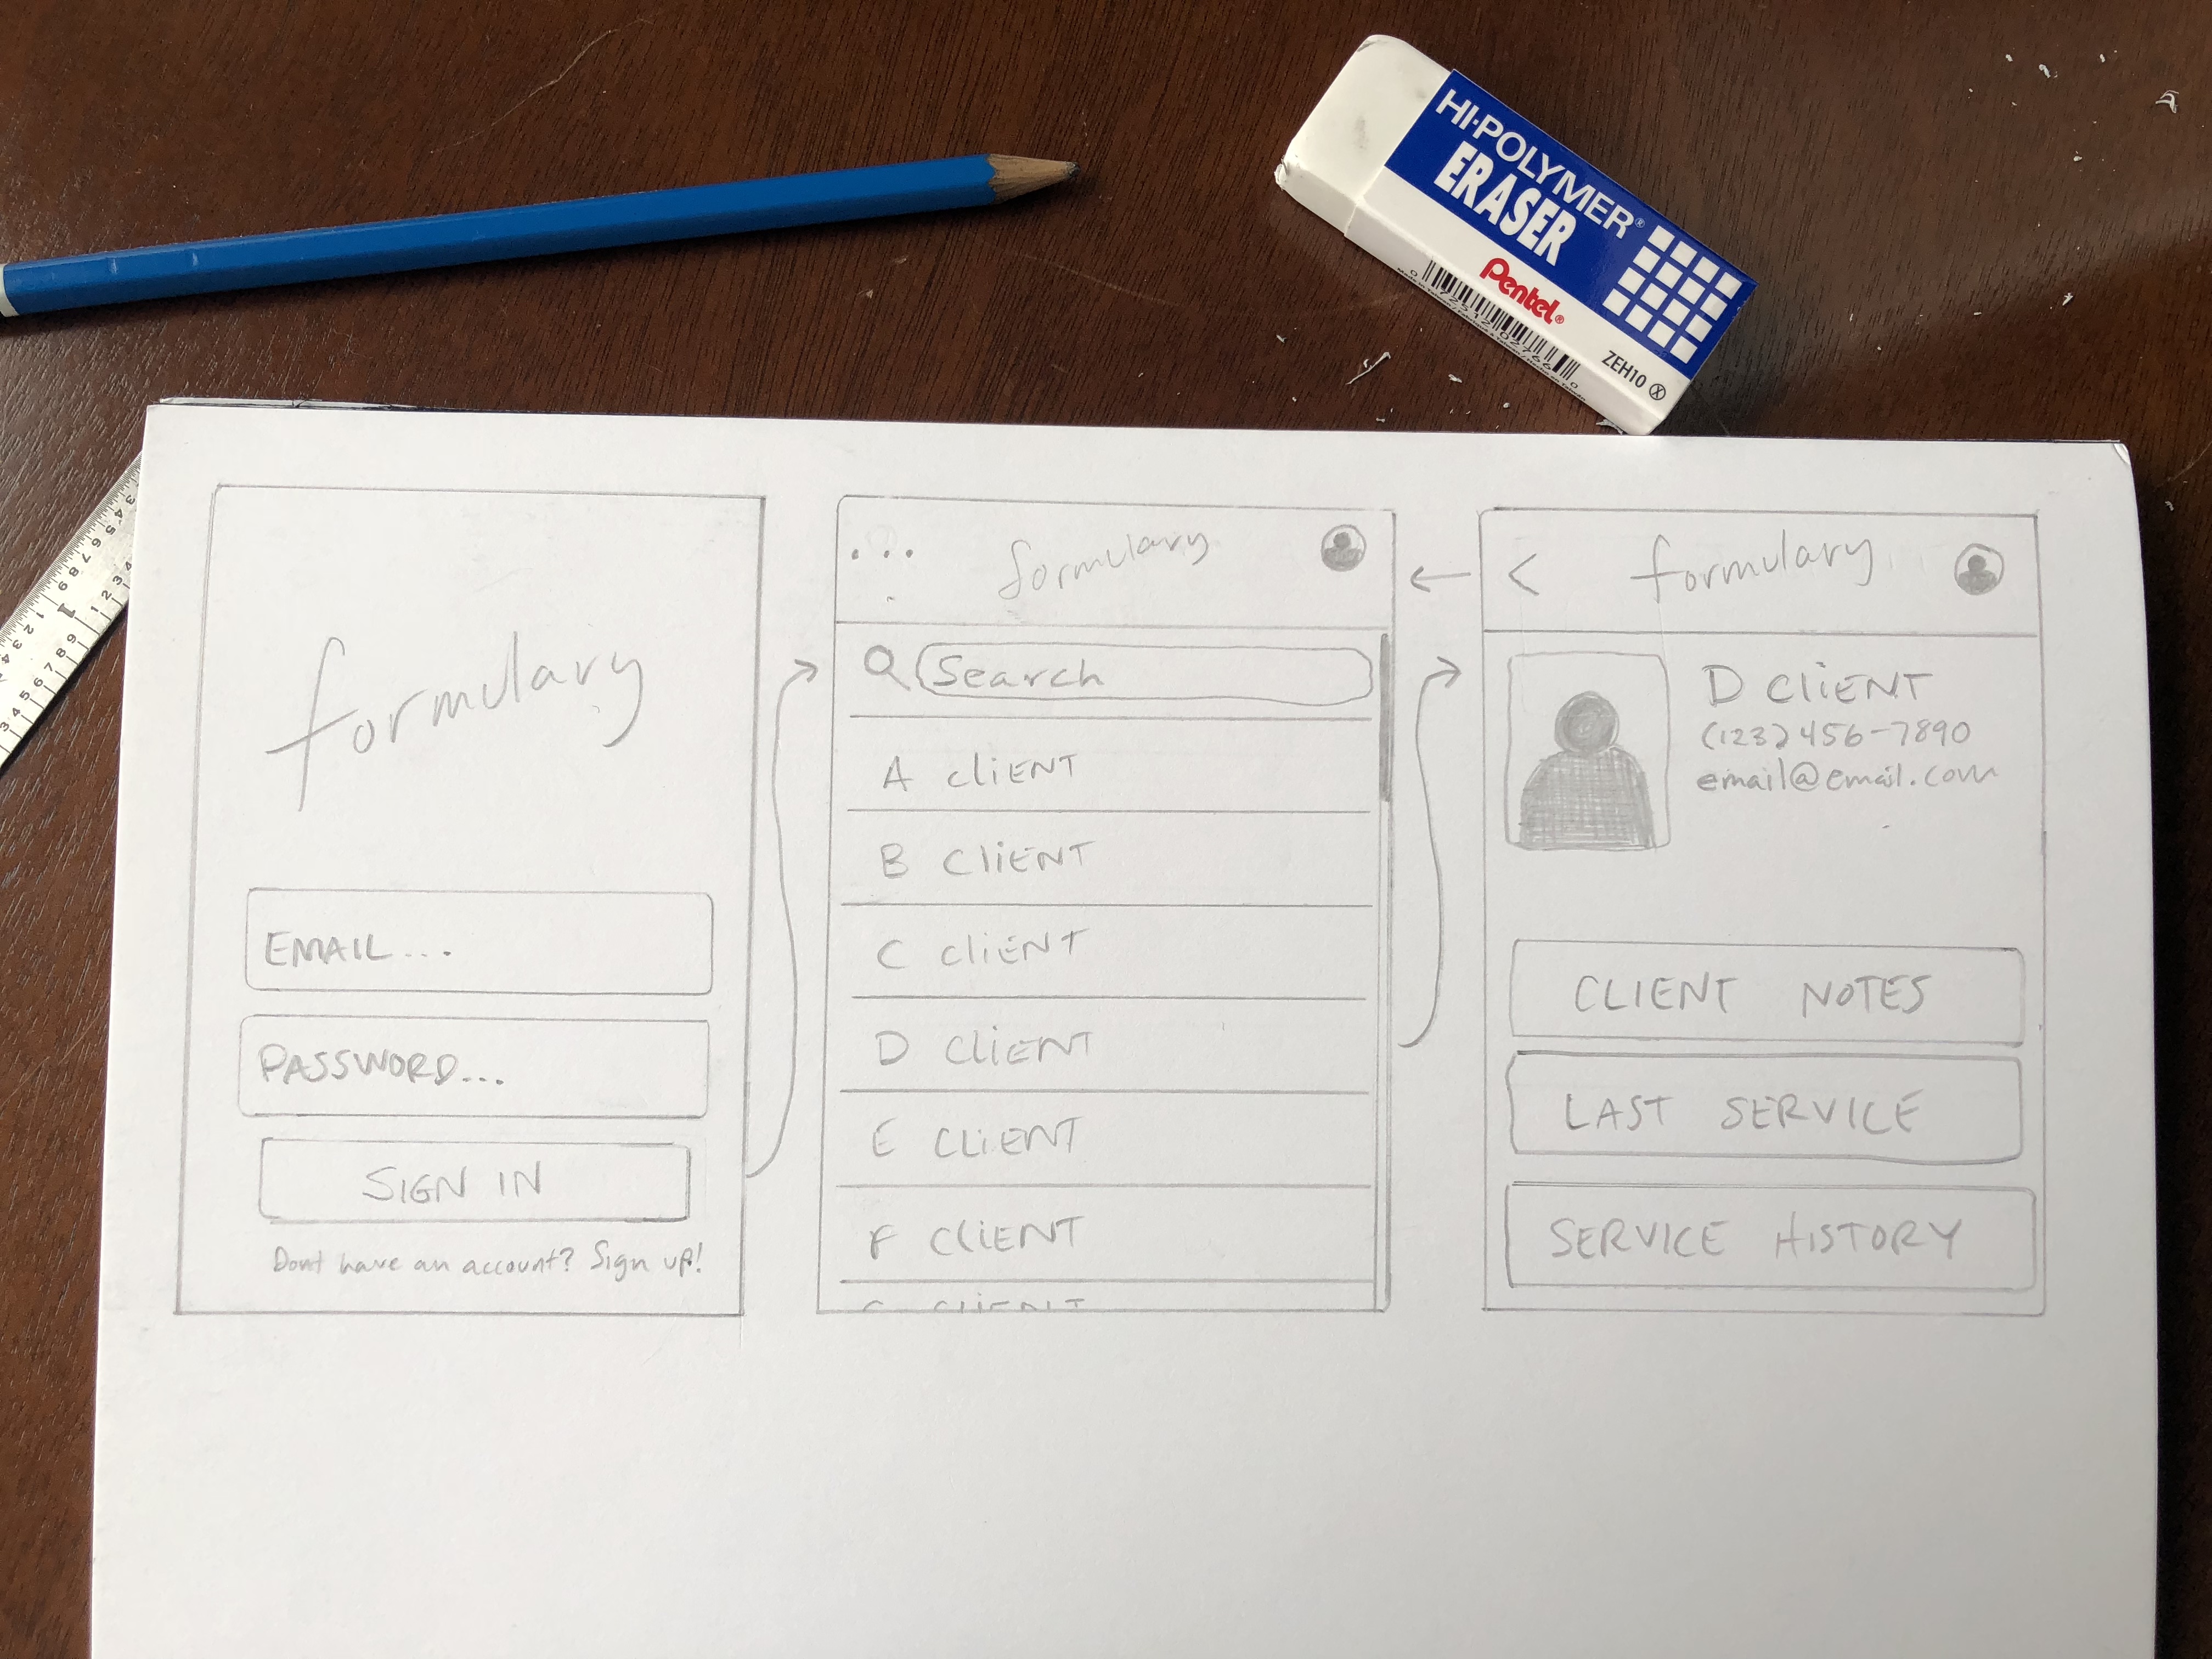 HI-POLYMER®
ERASER
Pentel®
ZEH10
formulary
EMAIL...
PASSWORD...
SIGN IN
Dont have an account? Sign up!
... formulary
Search
A CLIENT
B CLIENT
C CLIENT
D CLIENT
E CLIENT
F CLIENT
< formulary
D CLIENT
(123) 456-7890
email@email.com
CLIENT NOTES
LAST SERVICE
SERVICE HISTORY